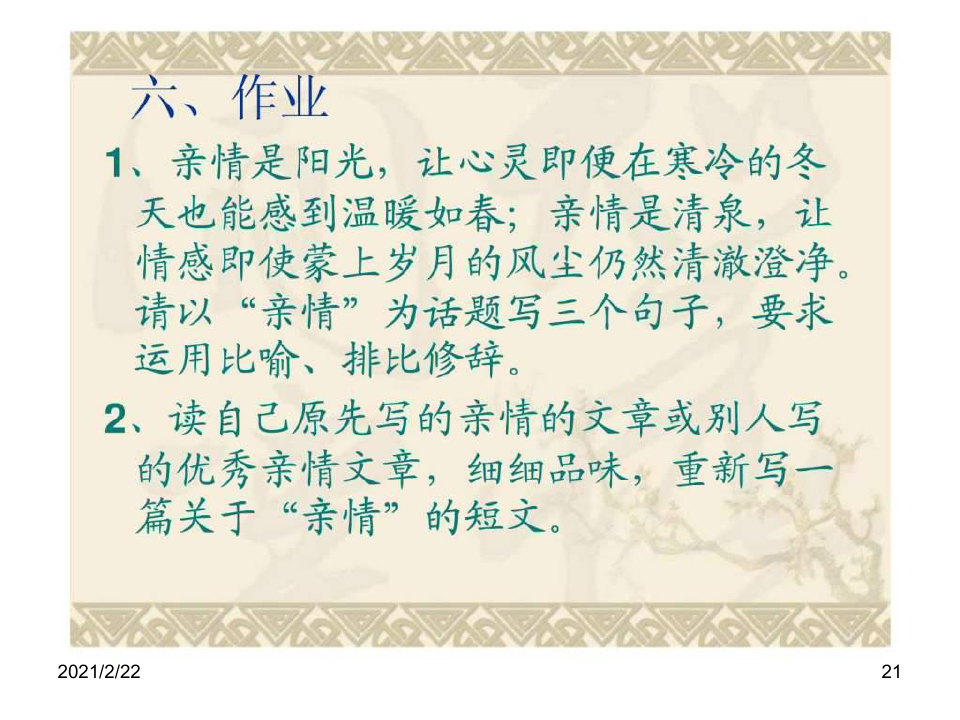 六、作业
1、亲情是阳光，让心灵即便在寒冷的冬
天也能感到温暖如春；亲情是清泉，让
情感即使蒙上岁月的风尘仍然清澈澄净。
请以“亲情”为话题写三个句子，要求
运用比喻、排比修辞。
2、读自己原先写的亲情的文章或别人写
的优秀亲情文章，细细品味，重新写一
篇关于“亲情”的短文。
2021/2/22
21